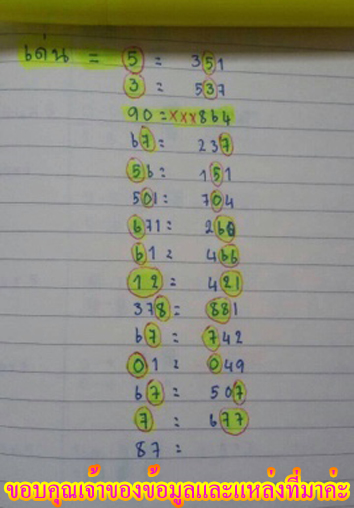 เด่น = 5 = 351
3 = 537
90 = xxx864
67 = 237
56 = 151
501 = 704
671 = 260
61 = 466
12 = 421
378 = 881
67 = 742
01 = 049
67 = 507
7 = 677
87 =
ขอบคุณเจ้าของข้อมูลและแหล่งที่มาค่ะ